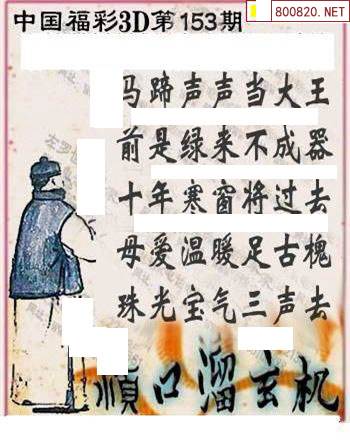 800820.NET
中国福彩3D第153期
马蹄声声当大王
前是绿来不成器
十年寒窗将过去
母爱温暖足古槐
珠光宝气三声去
顺口溜玄机